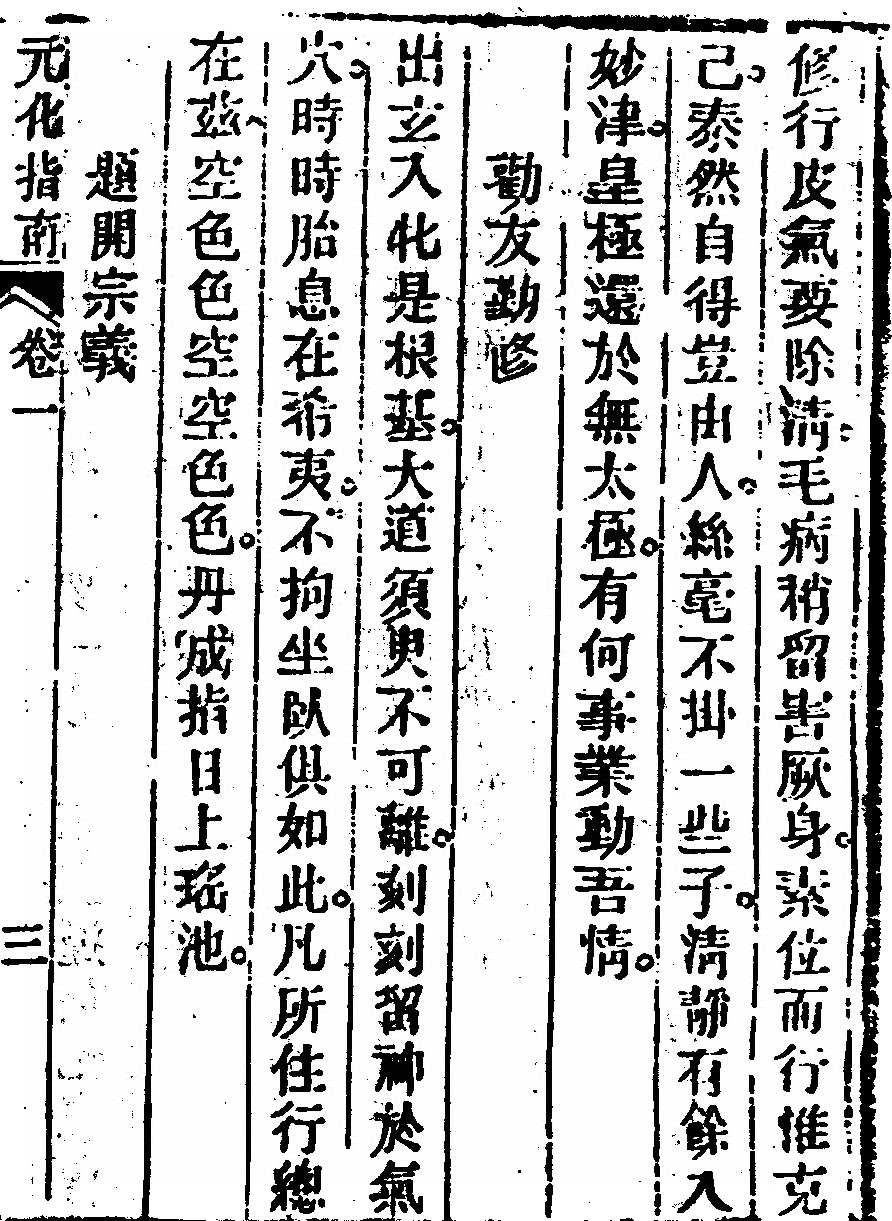 修行皮氣要除淸毛病稍留害厥身素位而行惟克
己泰然自得豈由人絲毫不掛一些子淸靜有餘入
妙津皇極還於無太極有何事業動吾情
勸友勤修
出玄入牝是根基大道須臾不可離刻刻留神於氣
穴時時胎息在希夷不拘坐臥俱如此凡所住行總
在茲空色色空空色色丹成指日上瑤池
題開宗義
元化指南 卷一 三